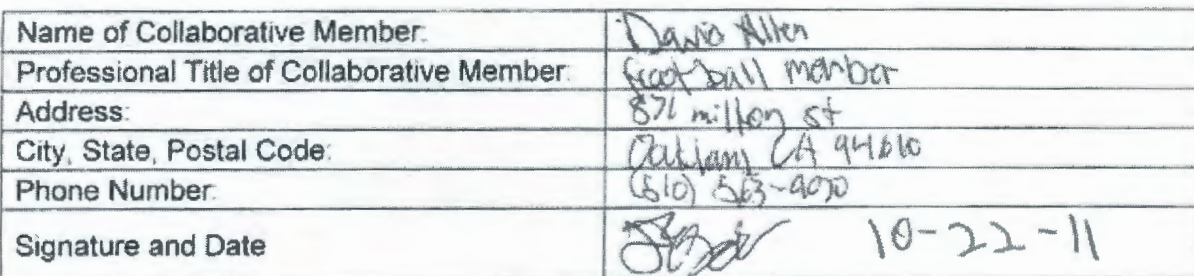 Name of Collaborative Member: David Allen
Professional Title of Collaborative Member: football member
Address: 871 milton st
City, State, Postal Code: Oakland CA
Phone Number: (510)
Signature and Date 10-22-11